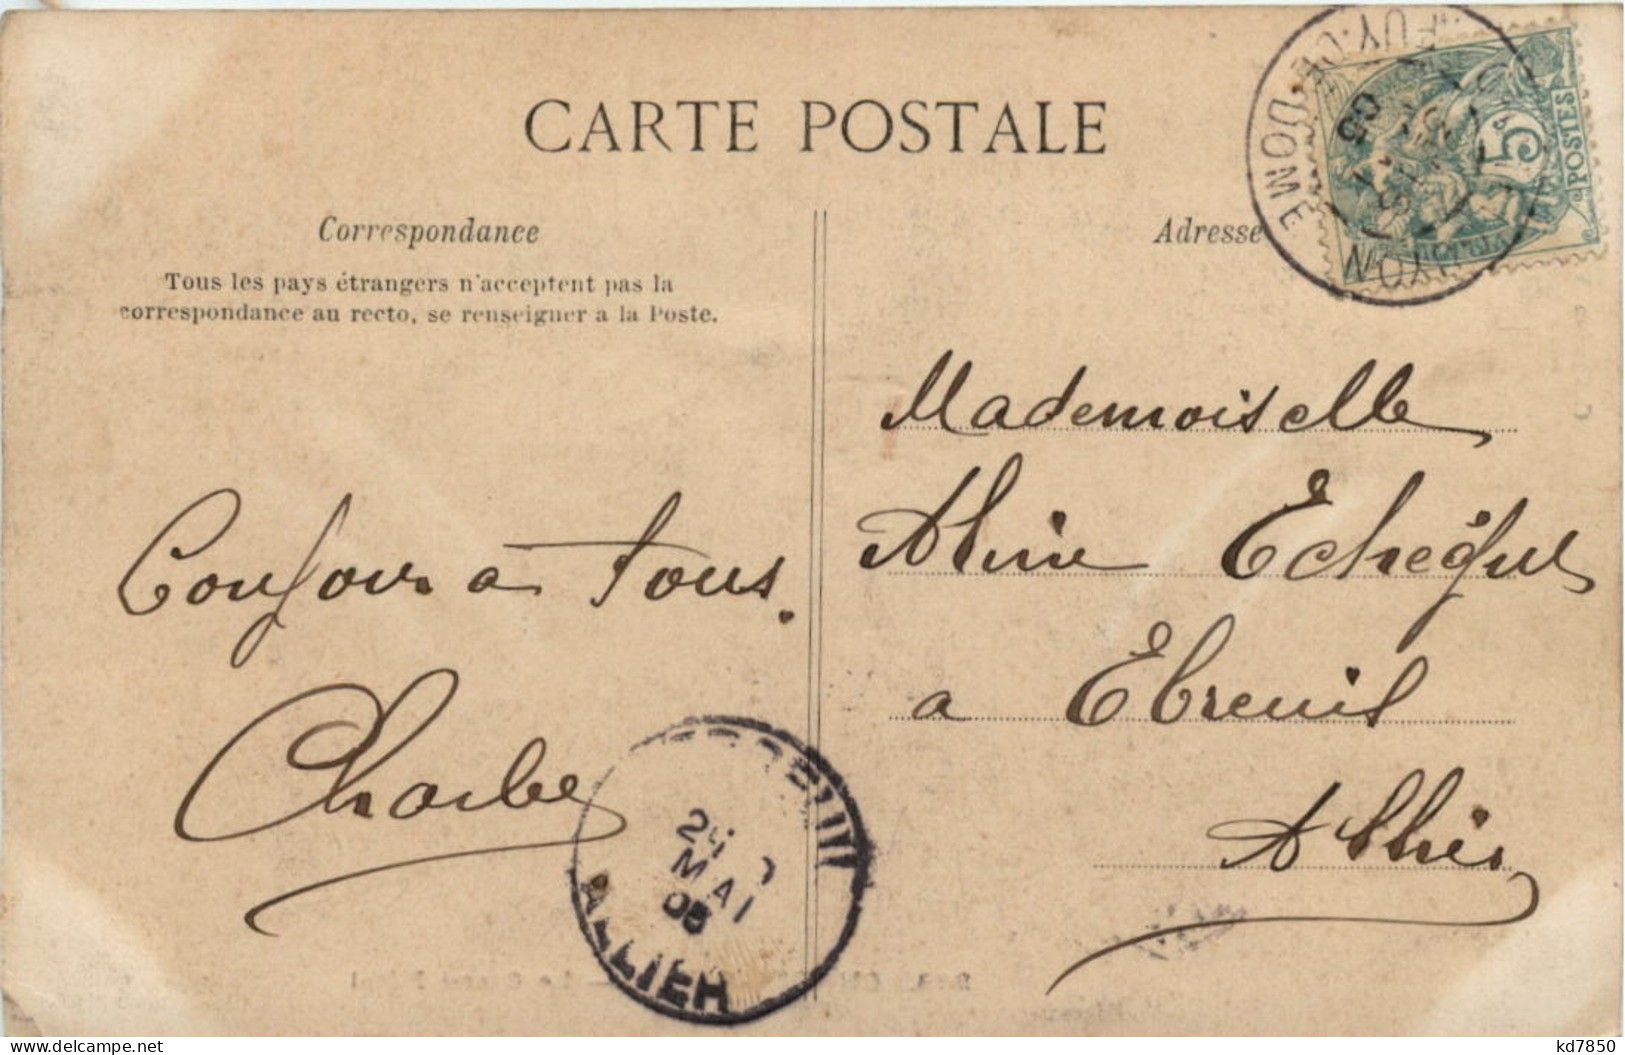 CARTE POSTALE
Correspondance
Tous les pays étrangers n'acceptent pas la
correspondance au recto, se renseigner a la Poste.
Adresse
5
POSTES
PUY-DE-DOME
05
Mademoiselle
Aline
a Ebreuil
Allier
à tous.
24
MAI
05
ALLIER
kd7850